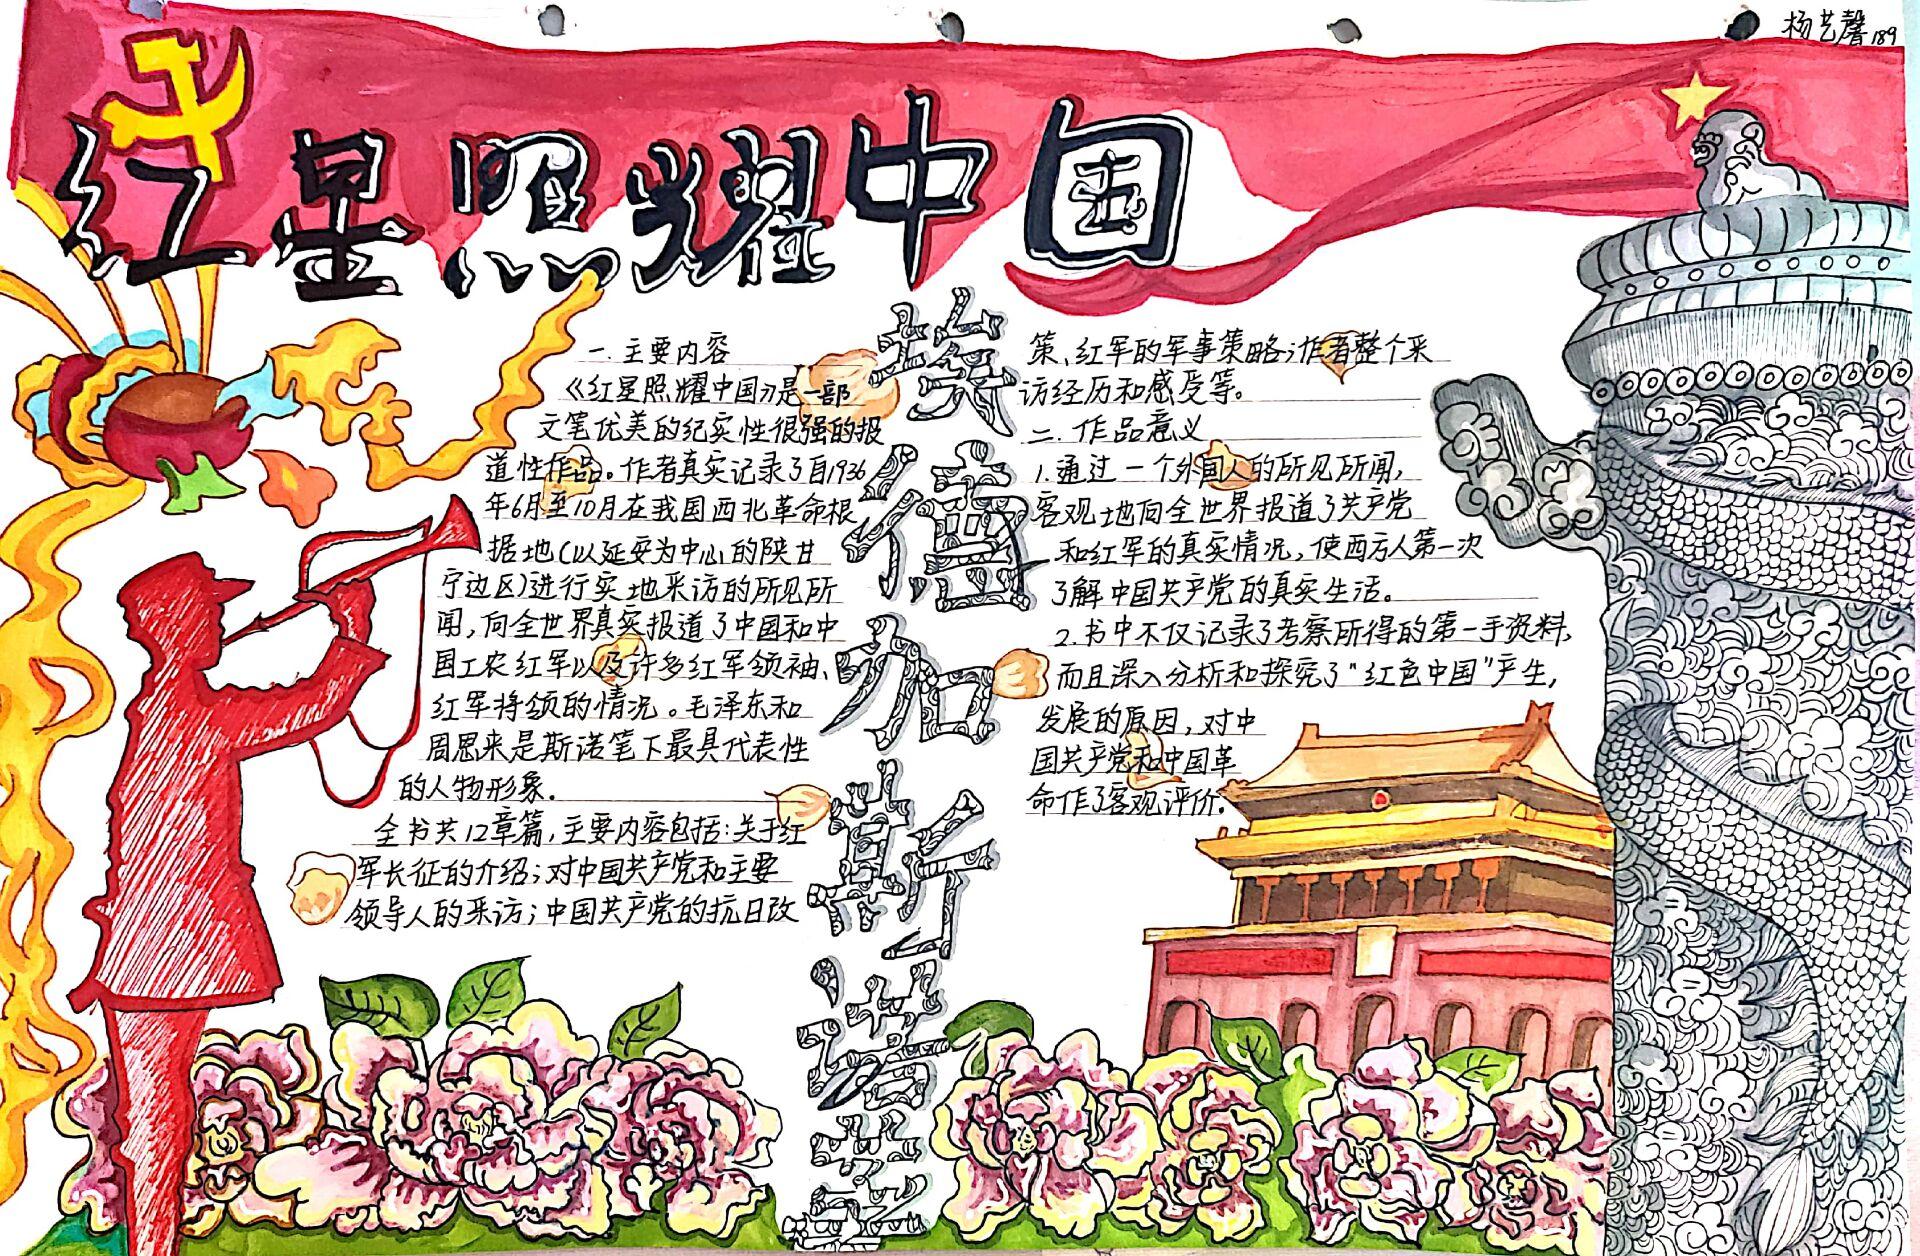 杨艺馨189
红星照耀中国
埃德加斯诺著
一.主要内容
《红星照耀中国》是一部
文笔优美的纪实性很强的报
道性作品。作者真实记录了自1936
年6月至10月在我国西北革命根
据地(以延安为中心的陕甘
宁边区)进行实地采访的所见所
闻,向全世界真实报道了中国和中
国工农红军以及许多红军领袖、
红军将领的情况。毛泽东和
周恩来是斯诺笔下最具代表性
的人物形象.
全书共12章篇,主要内容包括:关于红
军长征的介绍;对中国共产党和主要
领导人的采访;中国共产党的抗日改
策、红军的军事策略;作者整个采
访经历和感受等。
二.作品意义
1.通过一个外国人的所见所闻,
客观地向全世界报道了共产党
和红军的真实情况,使西方人第一次
了解中国共产党的真实生活。
2.书中不仅记录了考察所得的第一手资料,
而且深入分析和探究了“红色中国”产生,
发展的原因,对中
国共产党和中国革
命作了客观评价.